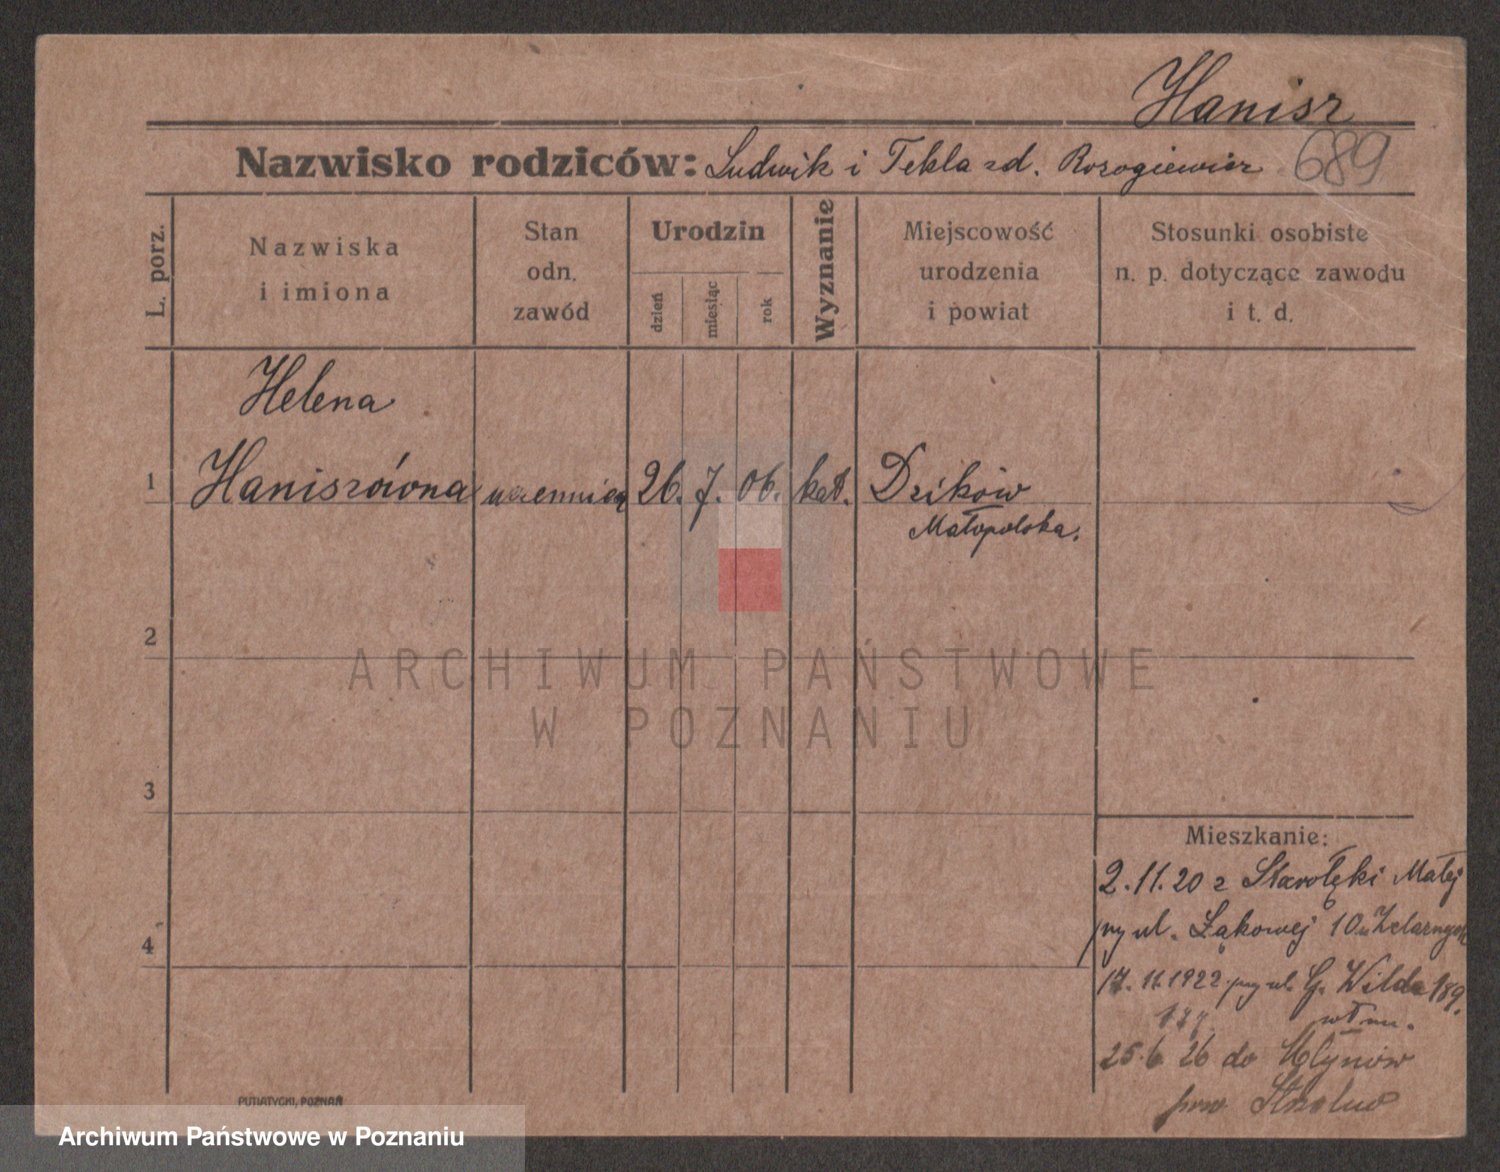 Hanisz
Nazwisko rodziców: Ludwik i Tekla zd. Rozogiewicz 689
L. porz.
Nazwiska
i imiona
Stan
odn.
zawód
Urodzin
dzień
miesiąc
rok
Wyznanie
Miejscowość
urodzenia
i powiat
Stosunki osobiste
n. p. dotyczące zawodu
i t. d.
Helena
1 Haniszówna uczennica 26. 7. 06. kat. Dzików
Małopolska.
2
ARCHIWUM PAŃSTWOWE
W POZNANIU
3
Mieszkanie:
2.11.20 z Starołęki Małej
przy ul. Łąkowej 10 u Żelaznych
4
17.11.1922 przy ul. G. Wilda 189.
187. wł m.
25.6.26 do Młynów
pow
PUTIATYCKI, POZNAŃ
Archiwum Państwowe w Poznaniu